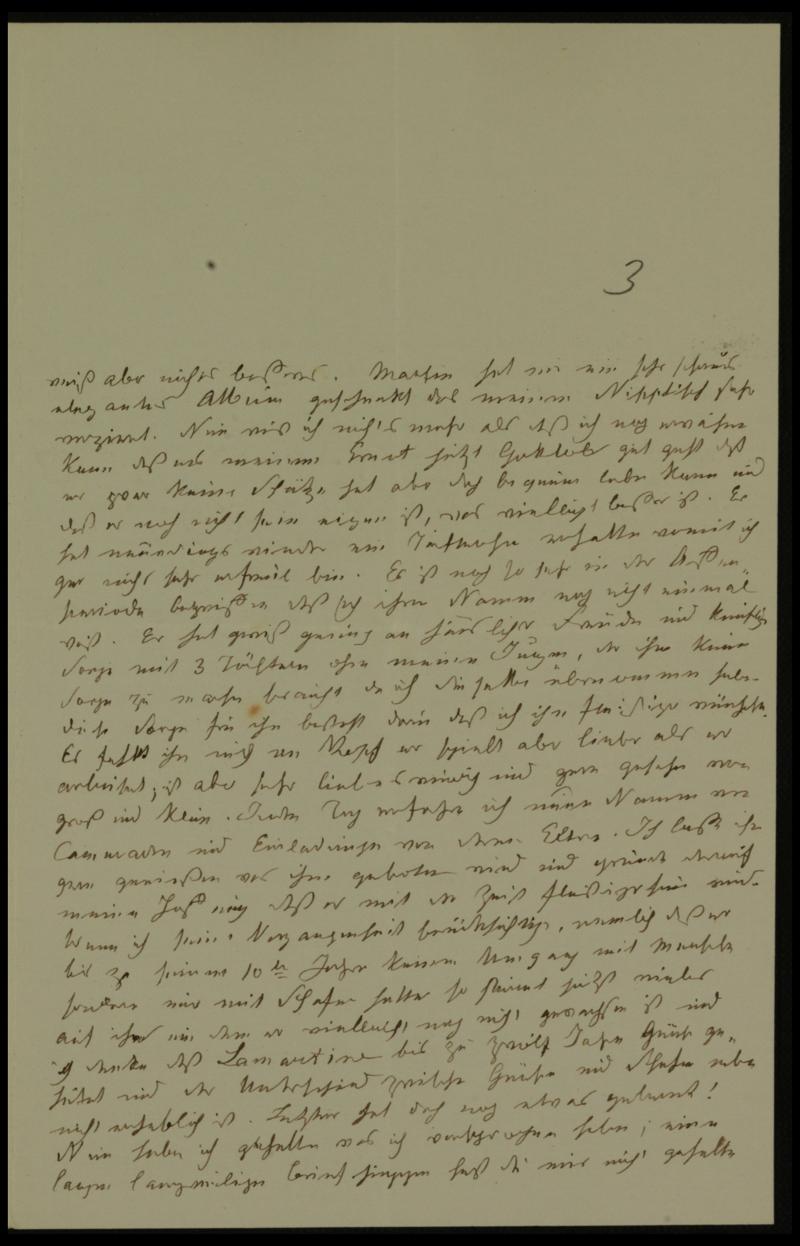 3
weiß aber nichts besseres. Martha hat mir ein sehr schönes
elegantes Album geschenkt das meinen Nipptisch sehr
verziert. Nun weiß ich nichts mehr als daß ich noch
kann daß es meinem Ernst jetzt Gottlob gut geht daß
er zwar keine Schätze hat aber doch bequem leben kann und
daß er noch nicht sein eigen ist, was vielleicht besser ist. Er
hat neuerdings wieder ein erhalten womit ich
gar nicht sehr erfreut bin. Es ist noch so sehr in der
periode begriffen daß ich ihren Namen noch nicht einmal
weiß. Er hat gewiß genug an häuslicher Freude und
Sorge mit 3 Töchtern ohne meinen Jungen, der ihm keine
Sorge zu machen braucht da ich dieselbe übernommen habe.
diese Sorge für ihn besteht darin daß ich ihn fleißiger wünschte.
Es fehlt ihm nicht an Kopf er spielt aber lieber als er
arbeitet, ist aber sehr liebenswürdig und gern gesehen von
groß und klein. Jeden Tag erfahre ich neue Namen von
Cameraden und Einladungen von deren Eltern. Ich lasse ihn
gern genießen was ihm geboten wird und
meine Hoffnung daß er mit der Zeit fleißiger sein wird.
Wenn ich seine Vergangenheit berücksichtige, nemlich daß er
bis zu seinem 10ten Jahre keinen Umgang mit Menschen
sondern nur mit Schafen hatte so stürmt jetzt vieles
auf ihn ein dem er vielleicht noch nicht gewachsen ist und
ich denke daß Lamartine bis zu zwölf Jahren Gänse ge-
hütet und der Unterschied zwischen Gänsen und Schafen eben
nicht erheblich ist. Letzterer hat doch noch etwas gelernt!
Nun habe ich gehalten was ich versprochen habe; einen
langen langweiligen Brief hast du mir nicht gehalten